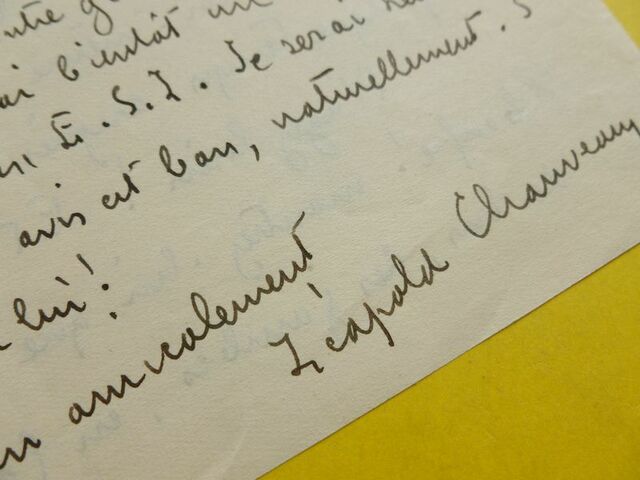 bientôt un
E. S. I. Je serai
avis est bon, naturellement.
lui!
amicalement
Léopold Chauveau